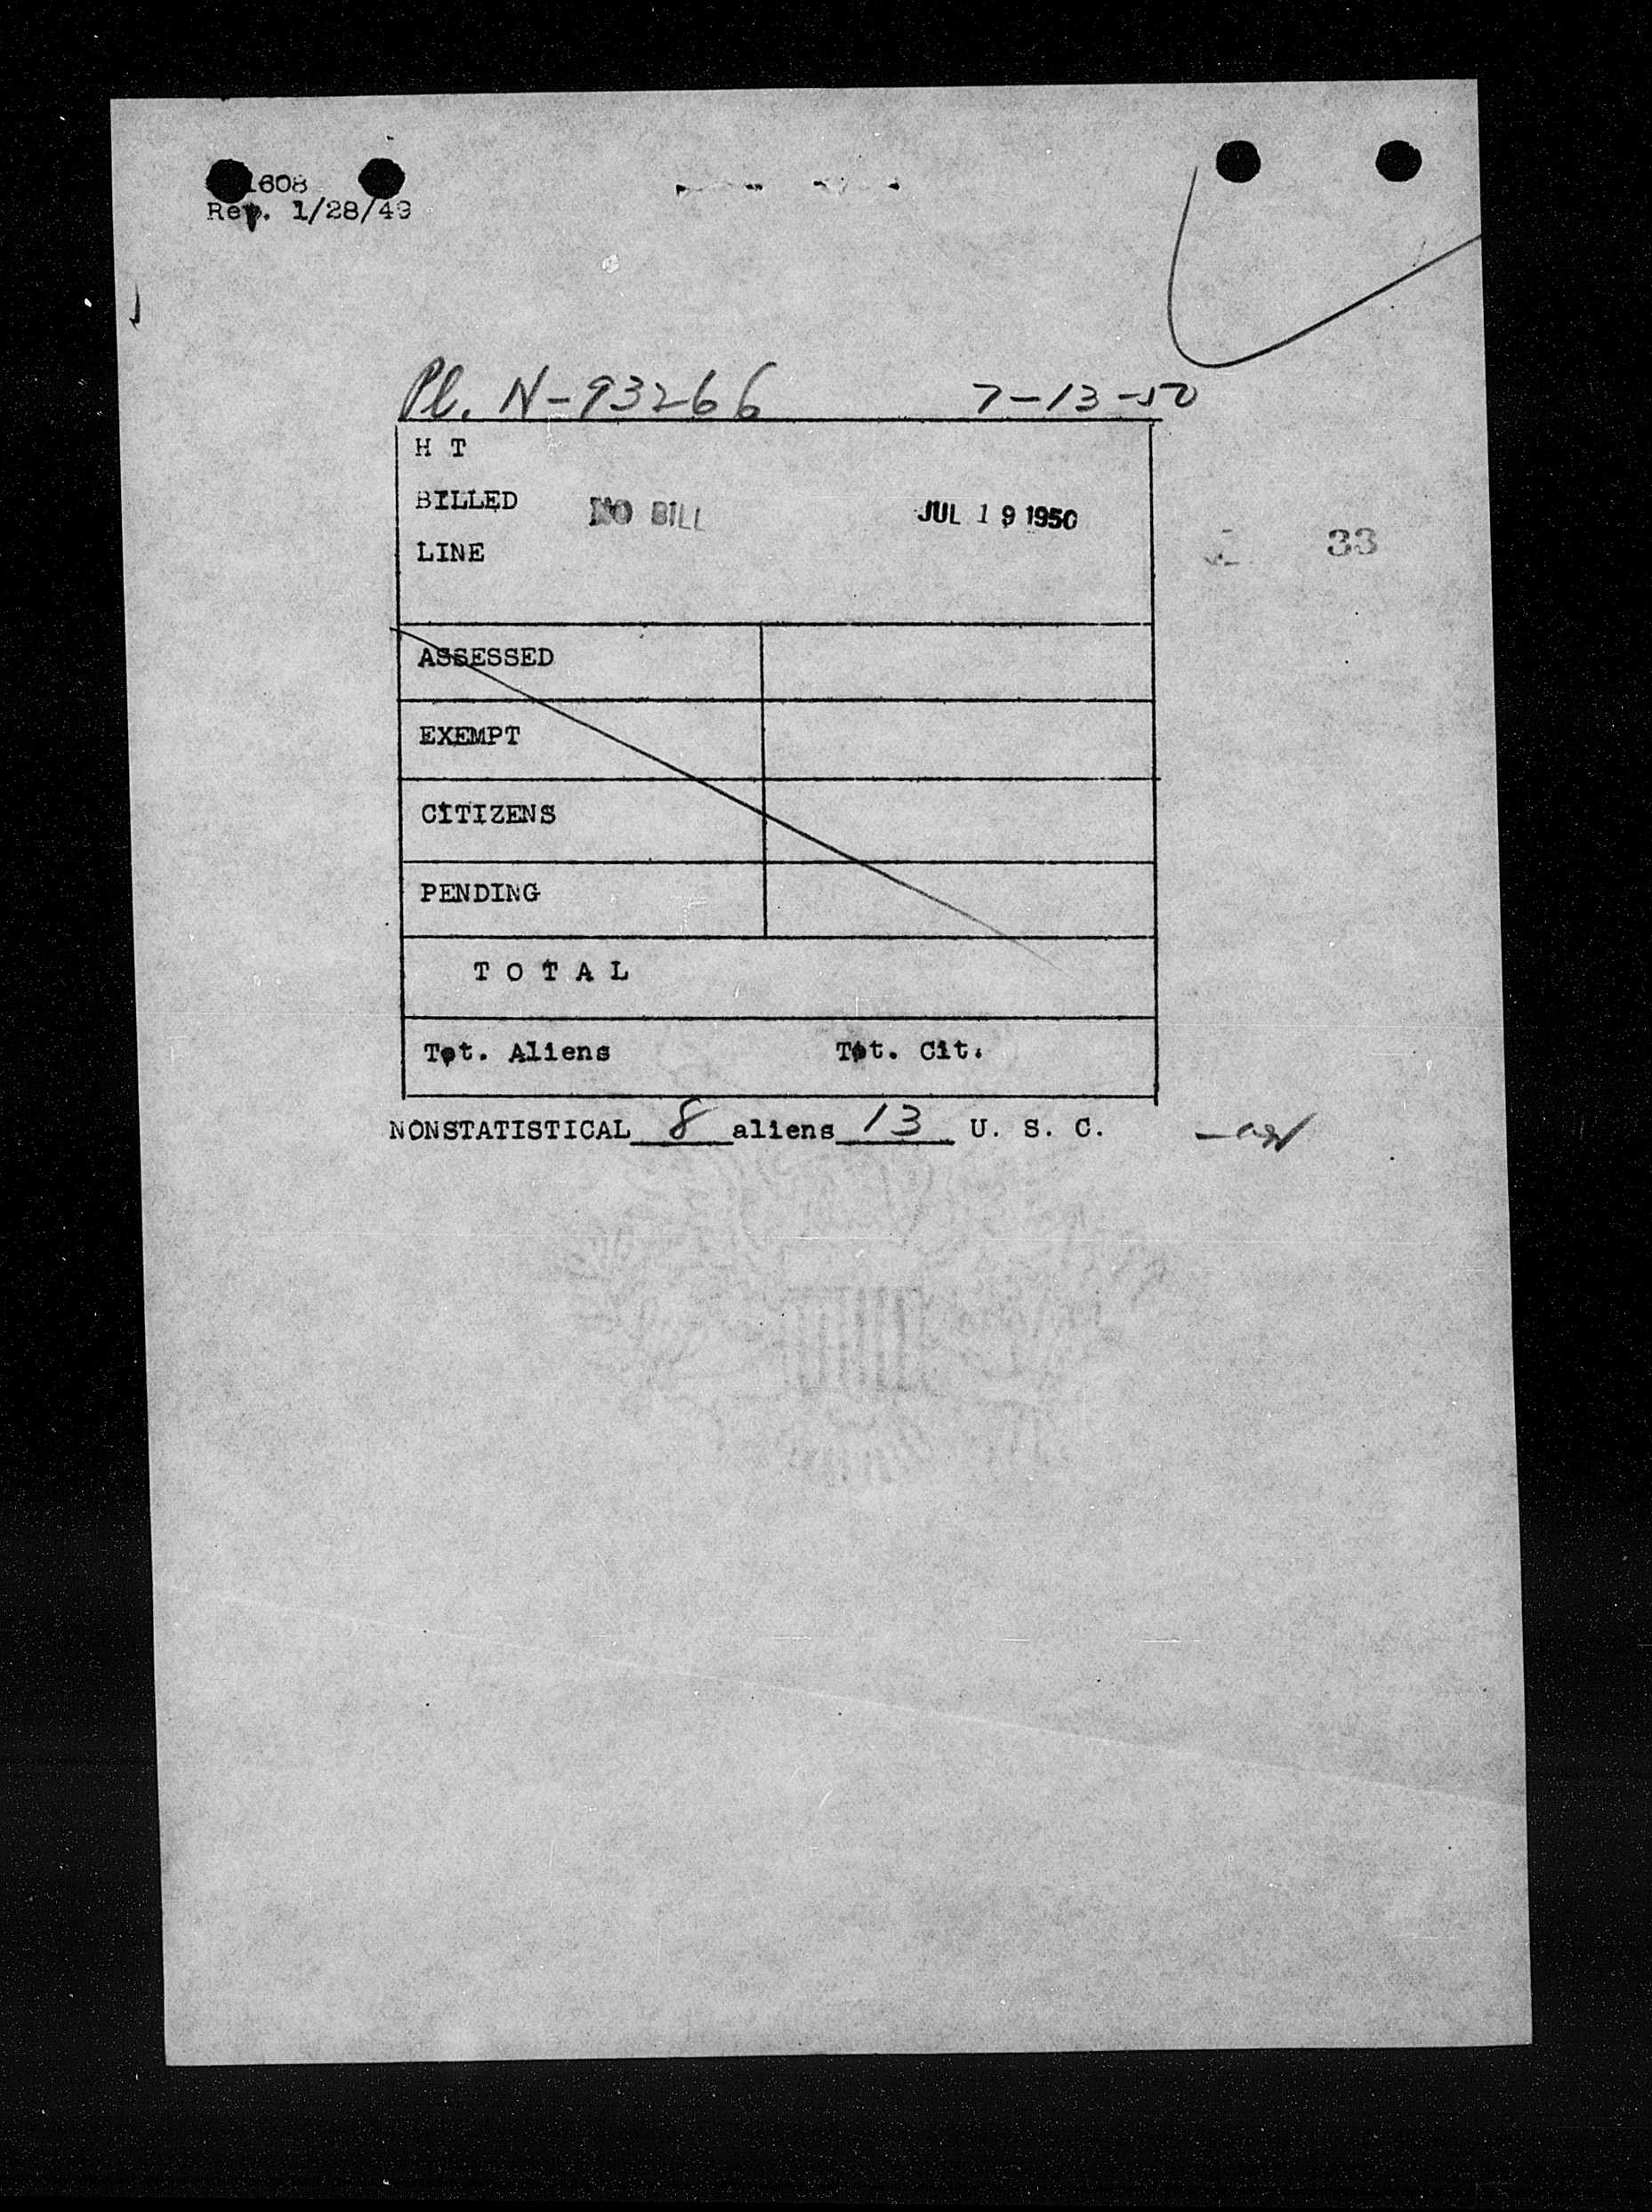 1608
Rev. 1/28/49
Pl. N-93266 7-13-50
H T
BILLED NO BILL JUL 19 1950
LINE
33
ASSESSED
EXEMPT
CITIZENS
PENDING
T O T A L
Tot. Aliens Tot. Cit.
NONSTATISTICAL 8 aliens 13 U. S. C.